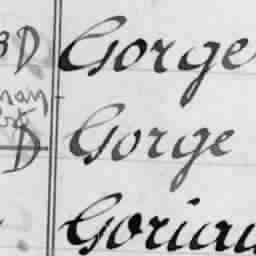 BD Gorge
D Gorge
Goriau